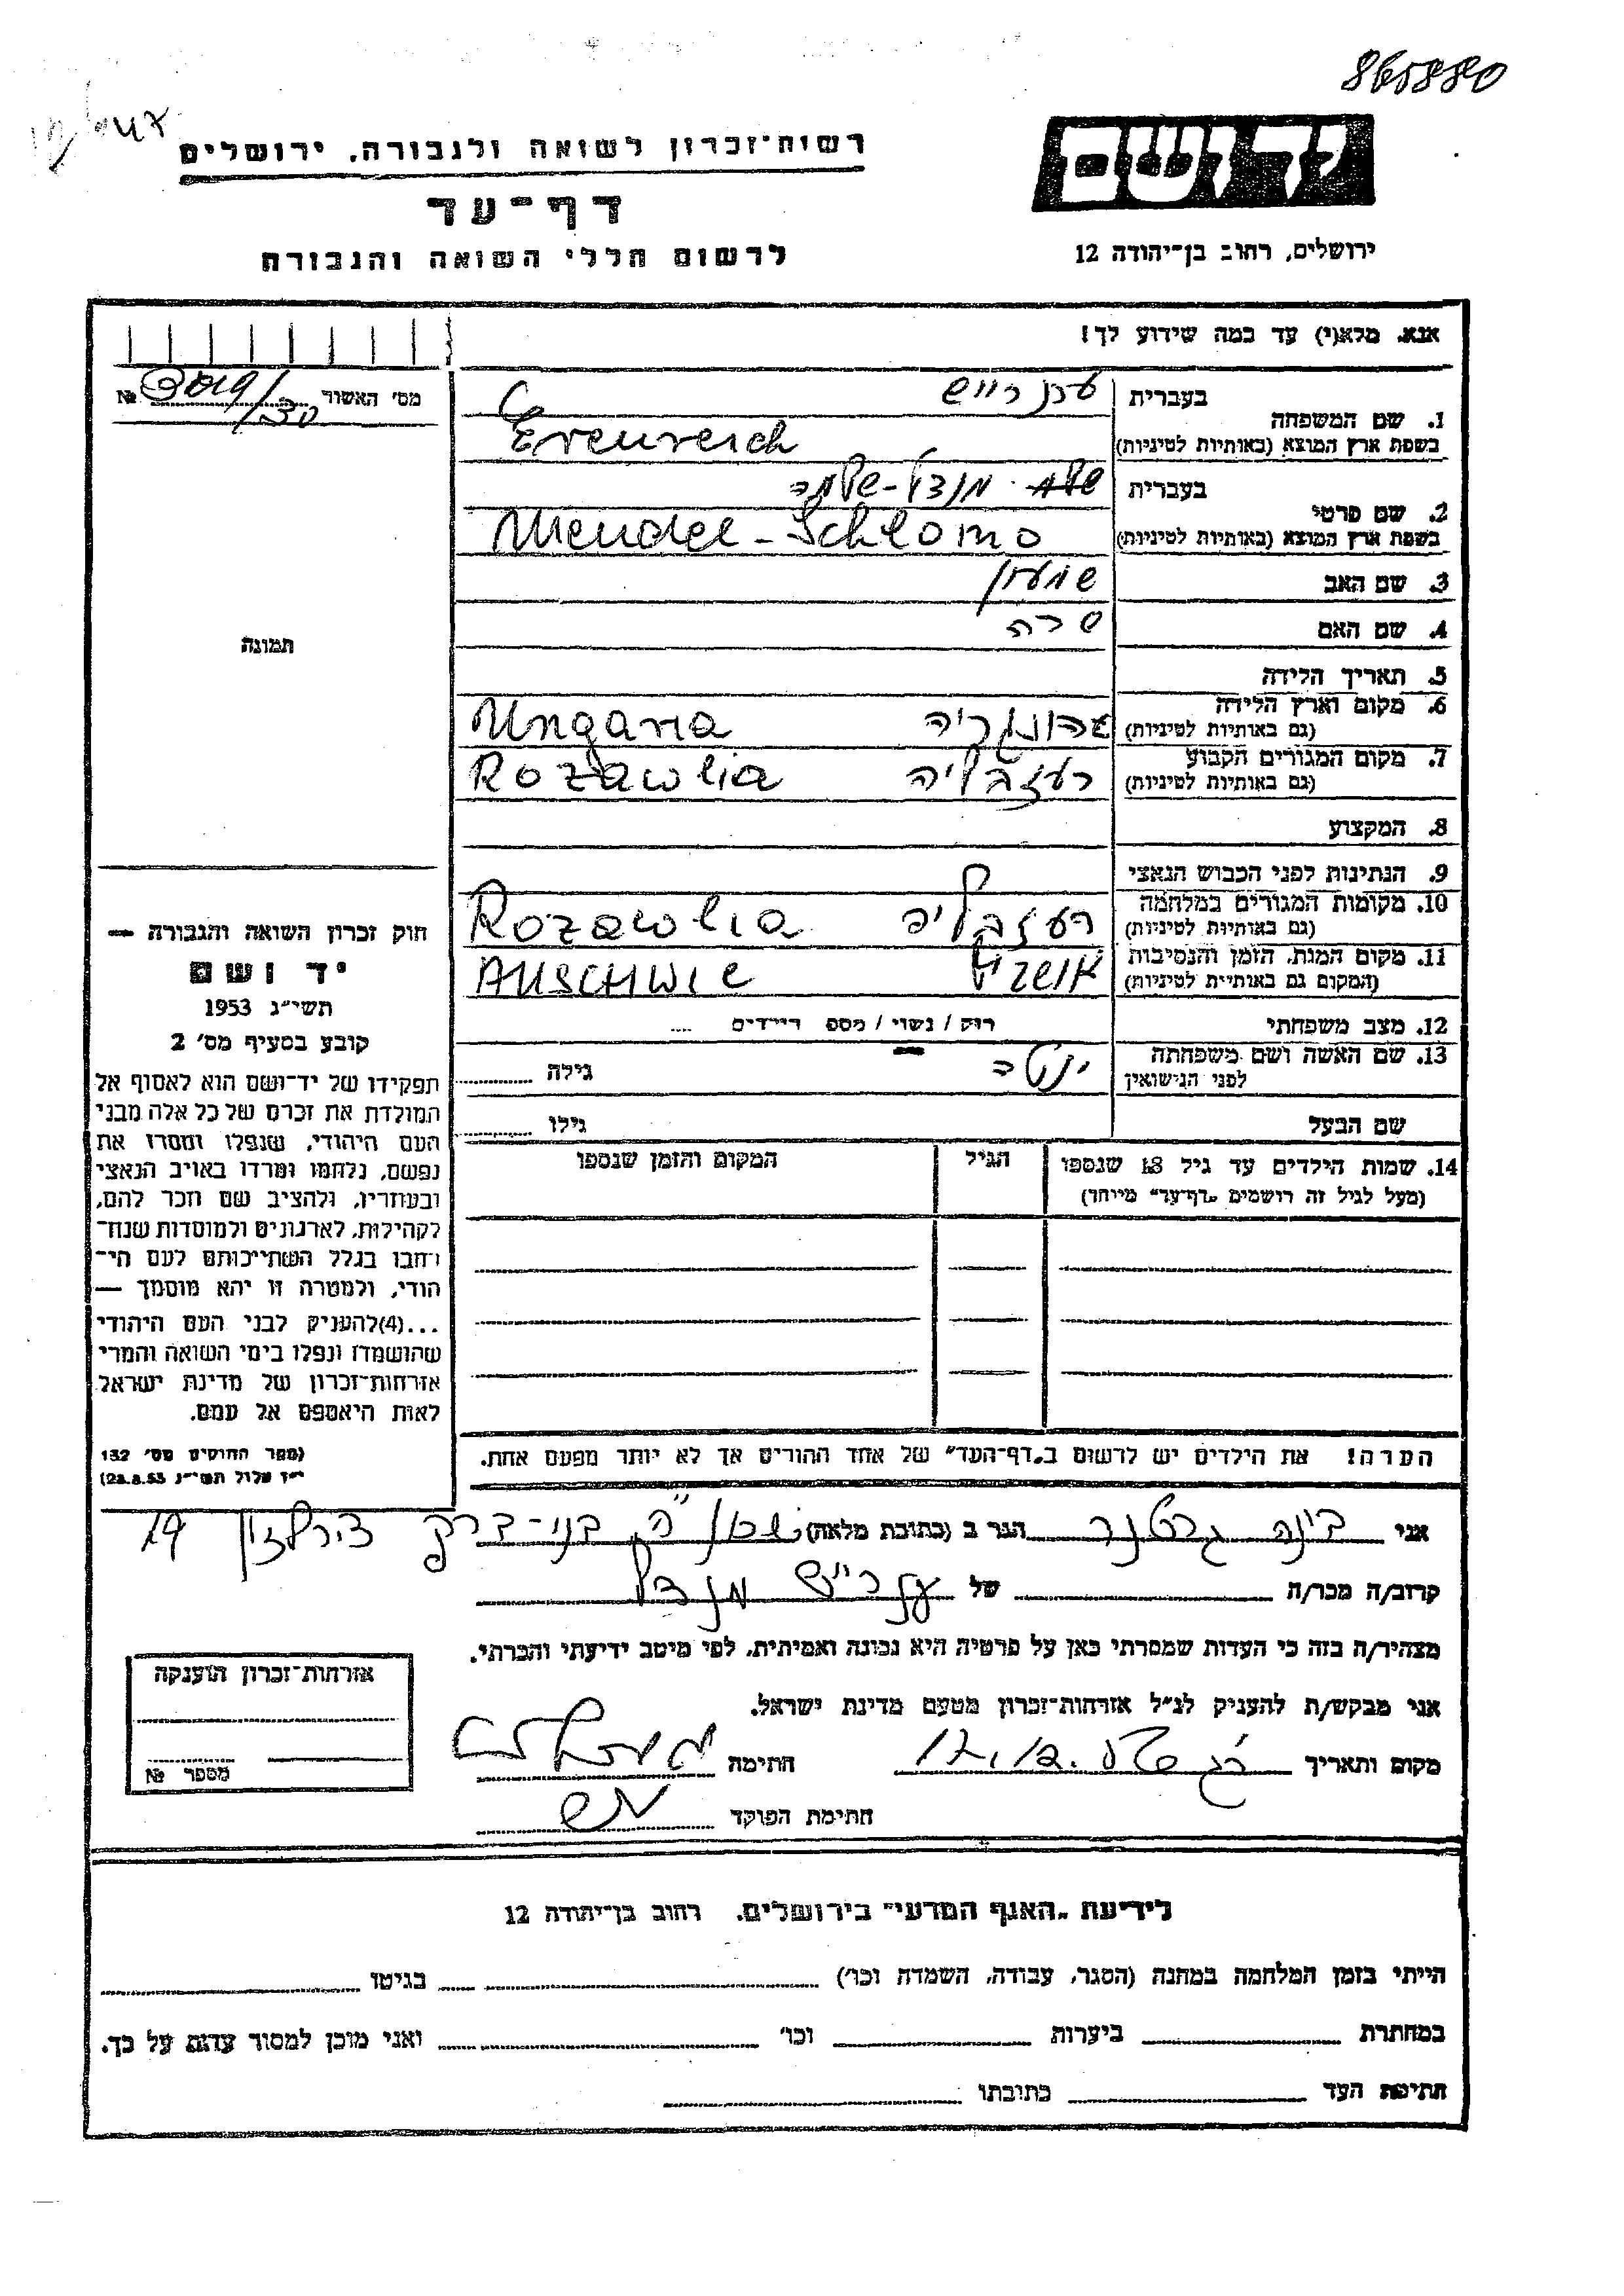 865880
יד ושם
רשות־זכרון לשואה ולגבורה, ירושלים
דף־עד
לרשום חללי השואה והגבורה
ירושלים, רחוב בן־יהודה 12
אנא, מלא(י) עד כמה שידוע לך!
מס׳ האשור №
1. שם המשפחה בעברית
בשפת ארץ המוצא (באותיות לטיניות) Erenreich
2. שם פרטי בעברית מנדל-שלמה
בשפת ארץ המוצא (באותיות לטיניות) Mendel-Schlomo
3. שם האב שמעון
4. שם האם שרה
תמונה
5. תאריך הלידה
6. מקום וארץ הלידה (גם באותיות לטיניות) אהונגריה Ungaria
7. מקום המגורים הקבוע (גם באותיות לטיניות) רעזבליה Rozawlia
8. המקצוע
9. הנתינות לפני הכבוש הנאצי
10. מקומות המגורים במלחמה (גם באותיות לטיניות) רעזבליה Rozawlia
11. מקום המות, הזמן והנסיבות (המקום גם באותיות לטיניות) AUSCHWIC
12. מצב משפחתי רוק / נשוי / מספ ריידים ....
13. שם האשה ושם משפחתה לפני הנישואין ינטה גילה
שם הבעל גילו
14. שמות הילדים עד גיל 18 שנספו
(מעל לגיל זה רושמים „דף־עד״ מייוחד)
הגיל
המקום והזמן שנספו
הערה! את הילדים יש לרשום ב„דף־העד״ של אחד ההורים אך לא יותר מפעם אחת.
חוק זכרון השואה והגבורה —
יד ושם
תשי״ג 1953
קובע בסעיף מס׳ 2
תפקידו של יד־ושם הוא לאסוף אל
המולדת את זכרם של כל אלה מבני
העם היהודי, שנפלו ומסרו את
נפשם, נלחמו ומרדו באויב הנאצי
ובעוזריו, ולהציב שם וזכר להם,
לקהילות, לארגונים ולמוסדות שנח־
רחבו בגלל השתייכותם לעם הי־
הודי, ולמטרה זו יהא מוסמך —
...(4)להעניק לבני העם היהודי
שהושמדו ונפלו בימי השואה והמרי
אזרחות־זכרון של מדינת ישראל
לאות היאספם אל עמם.
(ספר החוקים מס׳ 132
י״ז אלול תשי״ג 28.8.53)
אני בינה גרטנר הגר ב (כתובת מלאה) בני-ברק 19
קרוב/ה מכר/ה של מנדל
מצהיר/ה בזה כי העדות שמסרתי כאן על פרטיה היא נכונה ואמיתית, לפי מיטב ידיעתי והכרתי.
אני מבקש/ת להעניק לנ״ל אזרחות־זכרון מטעם מדינת ישראל.
מקום ותאריך חתימה
חתימת הפוקד
אזרחות־זכרון הוענקה
מספר №
לידיעת „האגף המדעי״ בירושלים, רחוב בן־יהודה 12
הייתי בזמן המלחמה במחנה (הסגר, עבודה, השמדה וכו׳) בגיטו
במחתרת ביערות וכו׳ ואני מוכן למסור עדות על כך.
חתימת העד כתובתו